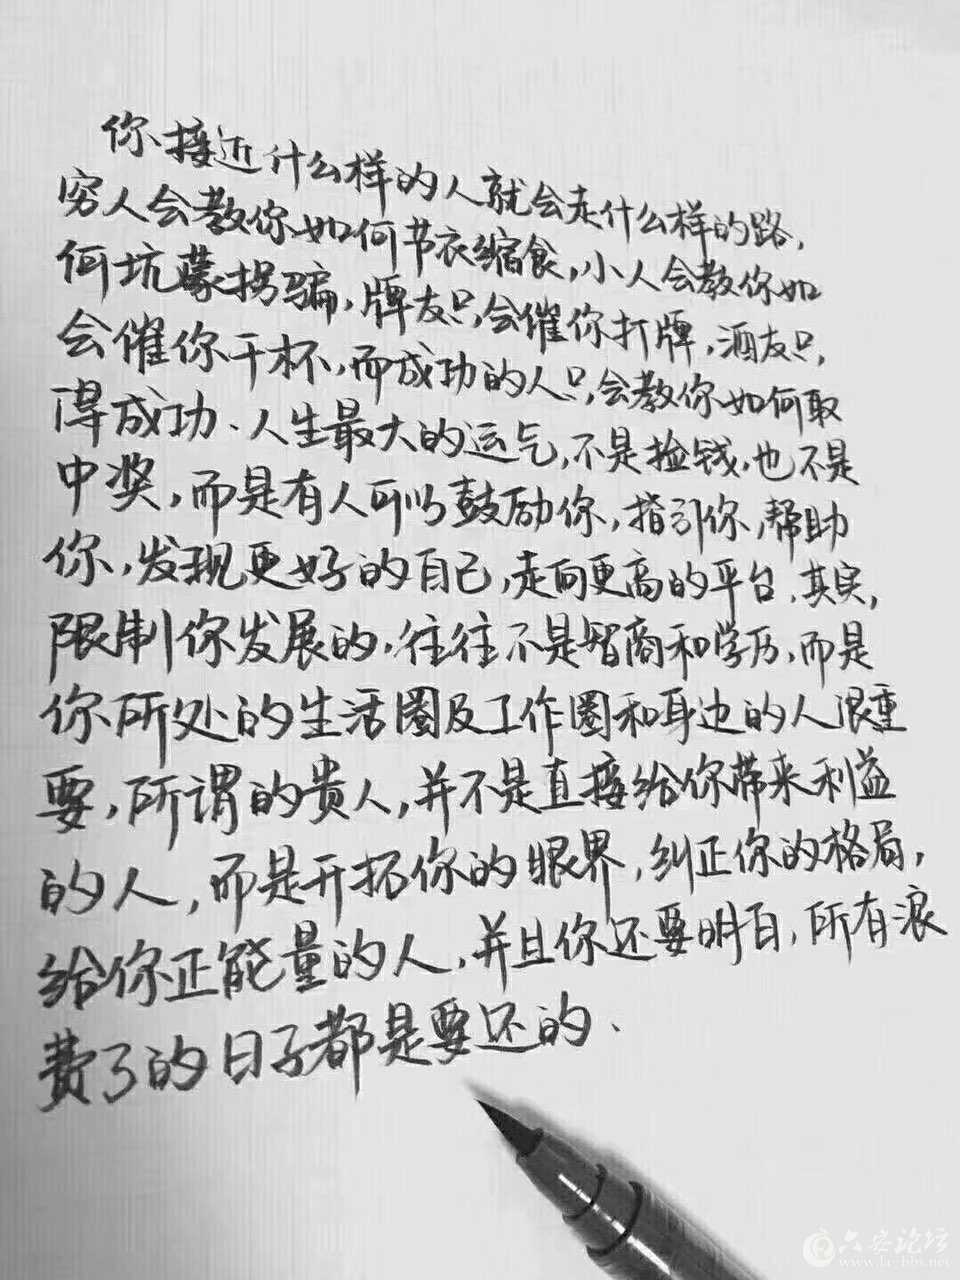 你接近什么样的人就会走什么样的路,
穷人会教你如何节衣缩食,小人会教你如
何坑蒙拐骗,牌友只会催你打牌,酒友只
会催你干杯,而成功的人只会教你如何取
得成功、人生最大的运气,不是捡钱,也不是
中奖,而是有人可以鼓励你,指引你,帮助
你,发现更好的自己,走向更高的平台.其实,
限制你发展的,往往不是智商和学历,而是
你所处的生活圈及工作圈和身边的人很重
要,所谓的贵人,并不是直接给你带来利益
的人,而是开拓你的眼界,纠正你的格局,
给你正能量的人,并且你还要明白,所有浪
费了的日子都是要还的、
六安论坛
www.la-bbs.net